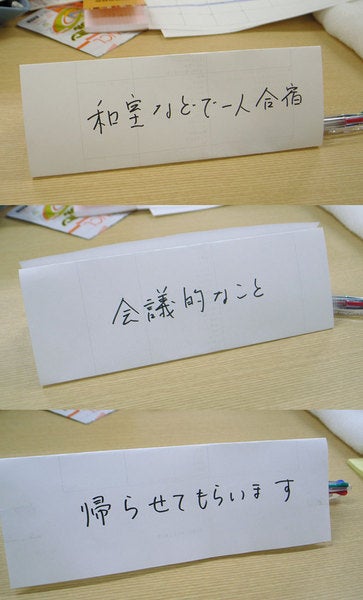 和室などで一人合宿
会議的なこと
帰らせてもらいます